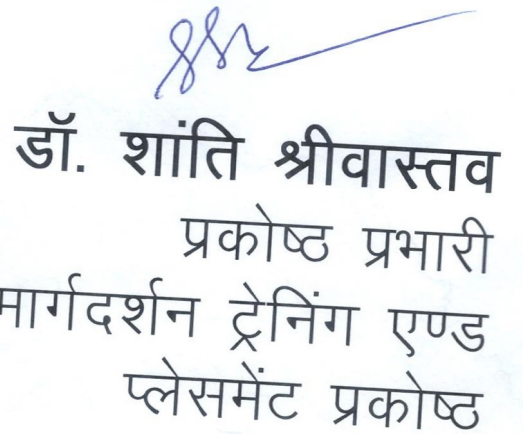 डॉ. शांति श्रीवास्तव
प्रकोष्ठ प्रभारी
मार्गदर्शन ट्रेनिंग एण्ड
प्लेसमेंट प्रकोष्ठ